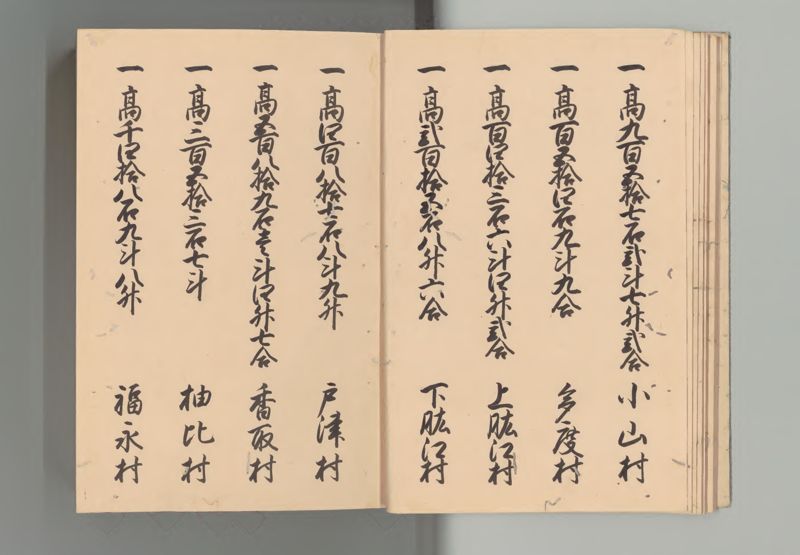 一高九百五拾七石弐斗七升弐合 小山村
一高百五拾四石九斗九合 多度村
一高百四拾三石六斗四升弐合 上肱江村
一高弐百拾五石八升六合 下肱江村
一高四百八拾七石八斗九升 戸津村
一高五百八拾九石壱斗四升七合 香取村
一高三百五拾三石七斗 柚比村
一高千四拾八石九斗八升 福永村